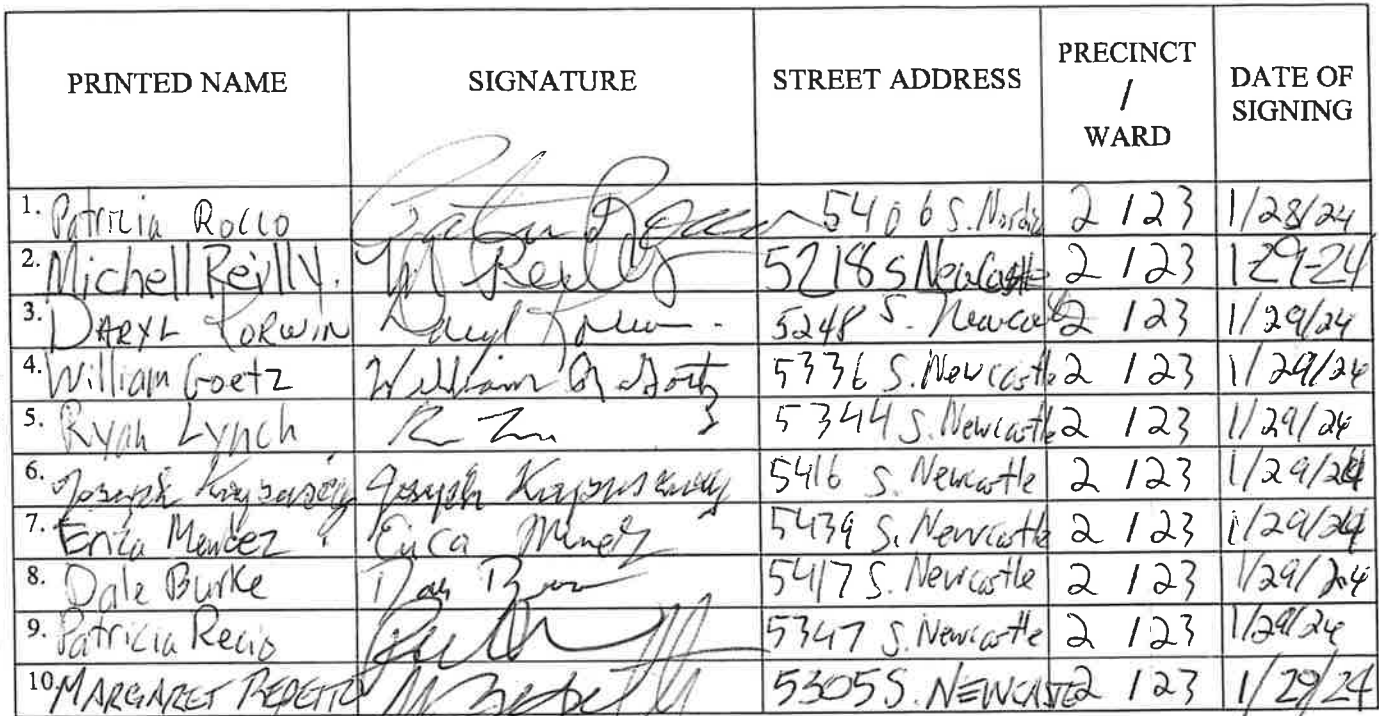 PRINTED NAME SIGNATURE STREET ADDRESS PRECINCT / WARD DATE OF SIGNING
1. Patricia Rocco 5406 S. 2 / 23 1/28/24
2. Michell Reilly. M Reilly 5218 S Newcastle 2 / 23 1-29-24
3. DARYL KORWIN Daryl Korwin 5248 S. Newcastle 2 / 23 1/29/24
4. William Goetz William Goetz 5336 S. Newcastle 2 / 23 1/29/24
5. Ryan Lynch 5344 S. Newcastle 2 / 23 1/29/24
6. Joseph Joseph 5416 S. Newcastle 2 / 23 1/29/24
7. Erica Mendez Erica 5439 S. Newcastle 2 / 23 1/29/24
8. Dale Burke 5417 S. Newcastle 2 / 23 1/29/24
9. Patricia Recio 5347 S. Newcastle 2 / 23 1/29/24
10. MARGARET 5305 S. NEWCASTLE 2 / 23 1/29/24